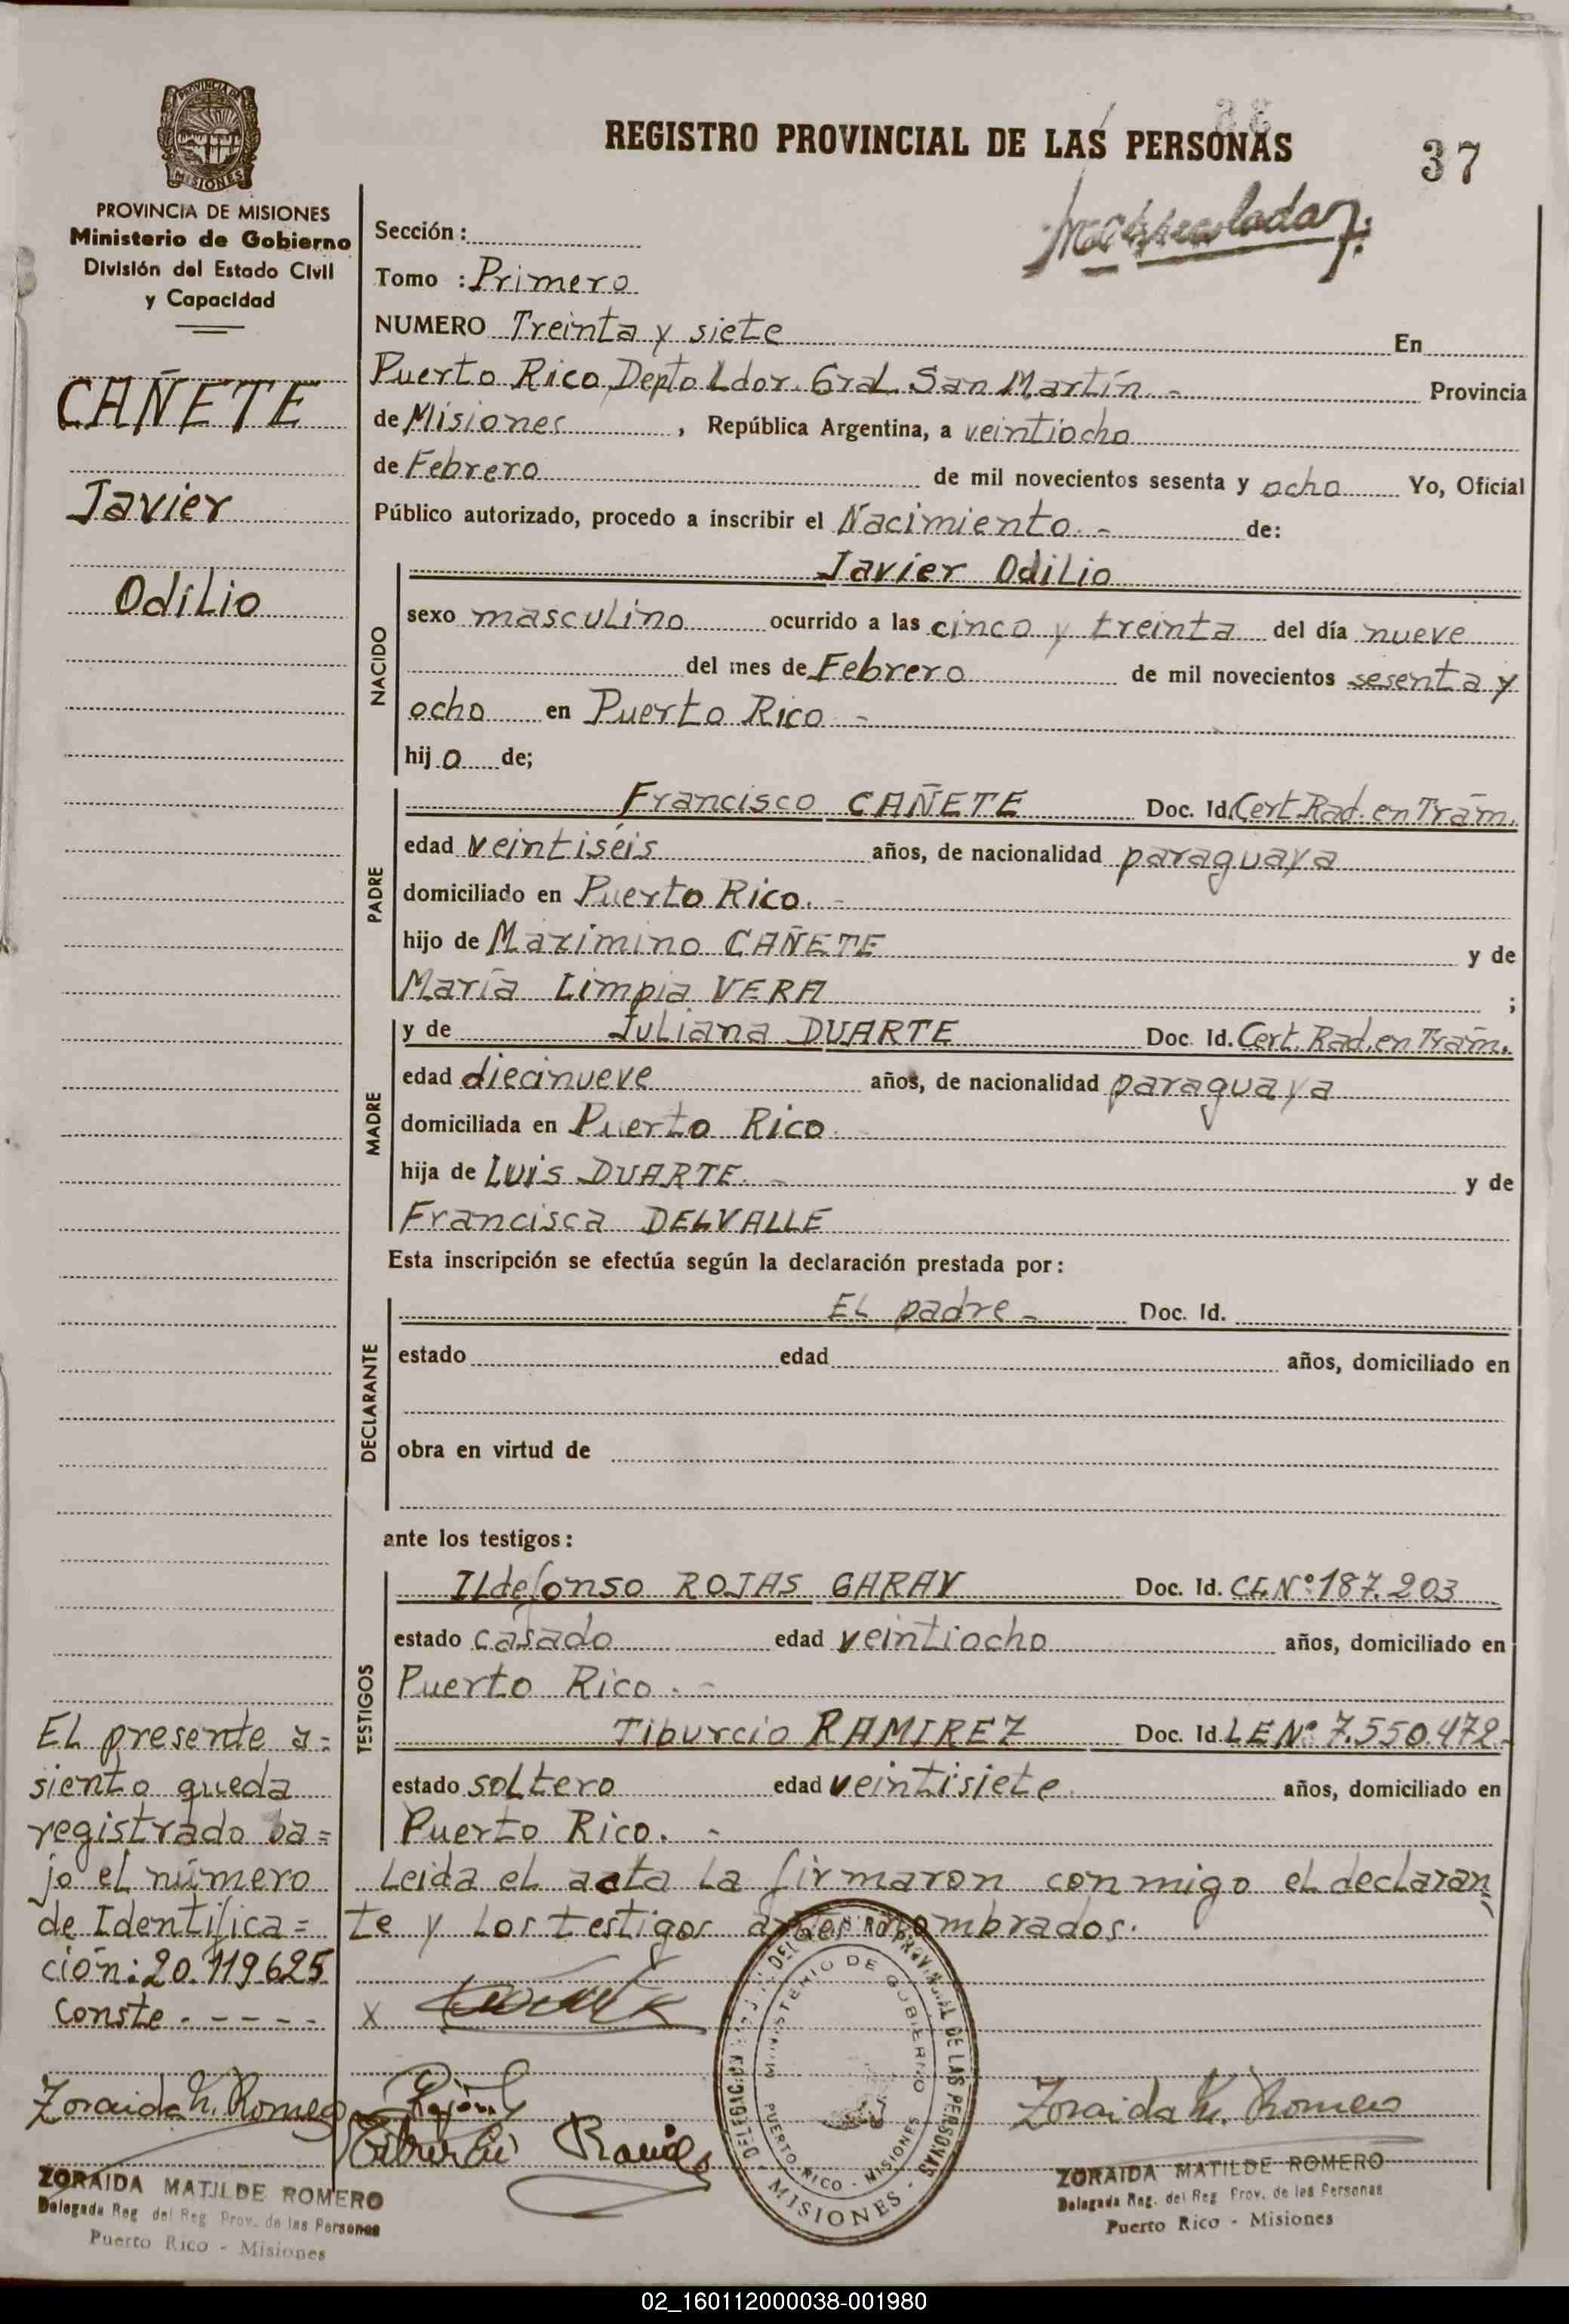 REGISTRO PROVINCIAL DE LAS PERSONAS
37
PROVINCIA DE MISIONES
MISIONES
PROVINCIA DE MISIONES
Ministerio de Gobierno
División del Estado Civil
y Capacidad
CAÑETE
Javier
Odilio
Sección:
Tomo : Primero
NUMERO Treinta y siete En
Puerto Rico, Depto Ldor. Gral. San Martín.- Provincia
de Misiones , República Argentina, a veintiocho
de Febrero de mil novecientos sesenta y ocho Yo, Oficial
Público autorizado, procedo a inscribir el Nacimiento.- de:
NACIDO
Javier Odilio
sexo masculino ocurrido a las cinco y treinta del día nueve
del mes de Febrero de mil novecientos sesenta y
ocho en Puerto Rico -
hij o de;
PADRE
Francisco CAÑETE Doc. Id. Cert. Rad. en Trám.
edad veintiséis años, de nacionalidad paraguaya
domiciliado en Puerto Rico.-
hijo de Maximino CAÑETE y de
María Limpia VERA ;
MADRE
y de Juliana DUARTE Doc. Id. Cert. Rad. en Trám.
edad diecinueve años, de nacionalidad paraguaya
domiciliada en Puerto Rico.-
hija de Luis DUARTE.- y de
Francisca DELVALLE
Esta inscripción se efectúa según la declaración prestada por:
DECLARANTE
El padre - Doc. Id.
estado edad años, domiciliado en
obra en virtud de
ante los testigos:
TESTIGOS
Ildefonso ROJAS GARAY Doc. Id. C.I. Nº 187.203
estado casado edad veintiocho años, domiciliado en
Puerto Rico.-
Tiburcio RAMIREZ Doc. Id. L.E. Nº 7.550.472.-
estado soltero edad veintisiete años, domiciliado en
Puerto Rico.-
Leida el acta la firmaron conmigo el declaran
te y los testigos antes nombrados.
El presente a=
siento queda
registrado ba=
jo el número
de Identifica=
ción: 20.119.625
Conste.-----
X
Zoraida M. Romero
Tiburcio Ramirez
Zoraida M. Romero
PROVINCIAL DE LAS PERSONAS
MINISTERIO DE GOBIERNO
PUERTO RICO - MISIONES
MISIONES
ZORAIDA MATILDE ROMERO
Delegada Reg. del Reg. Prov. de las Personas
Puerto Rico - Misiones
ZORAIDA MATILDE ROMERO
Delegada Reg. del Reg. Prov. de las Personas
Puerto Rico - Misiones
02_160112000038-001980